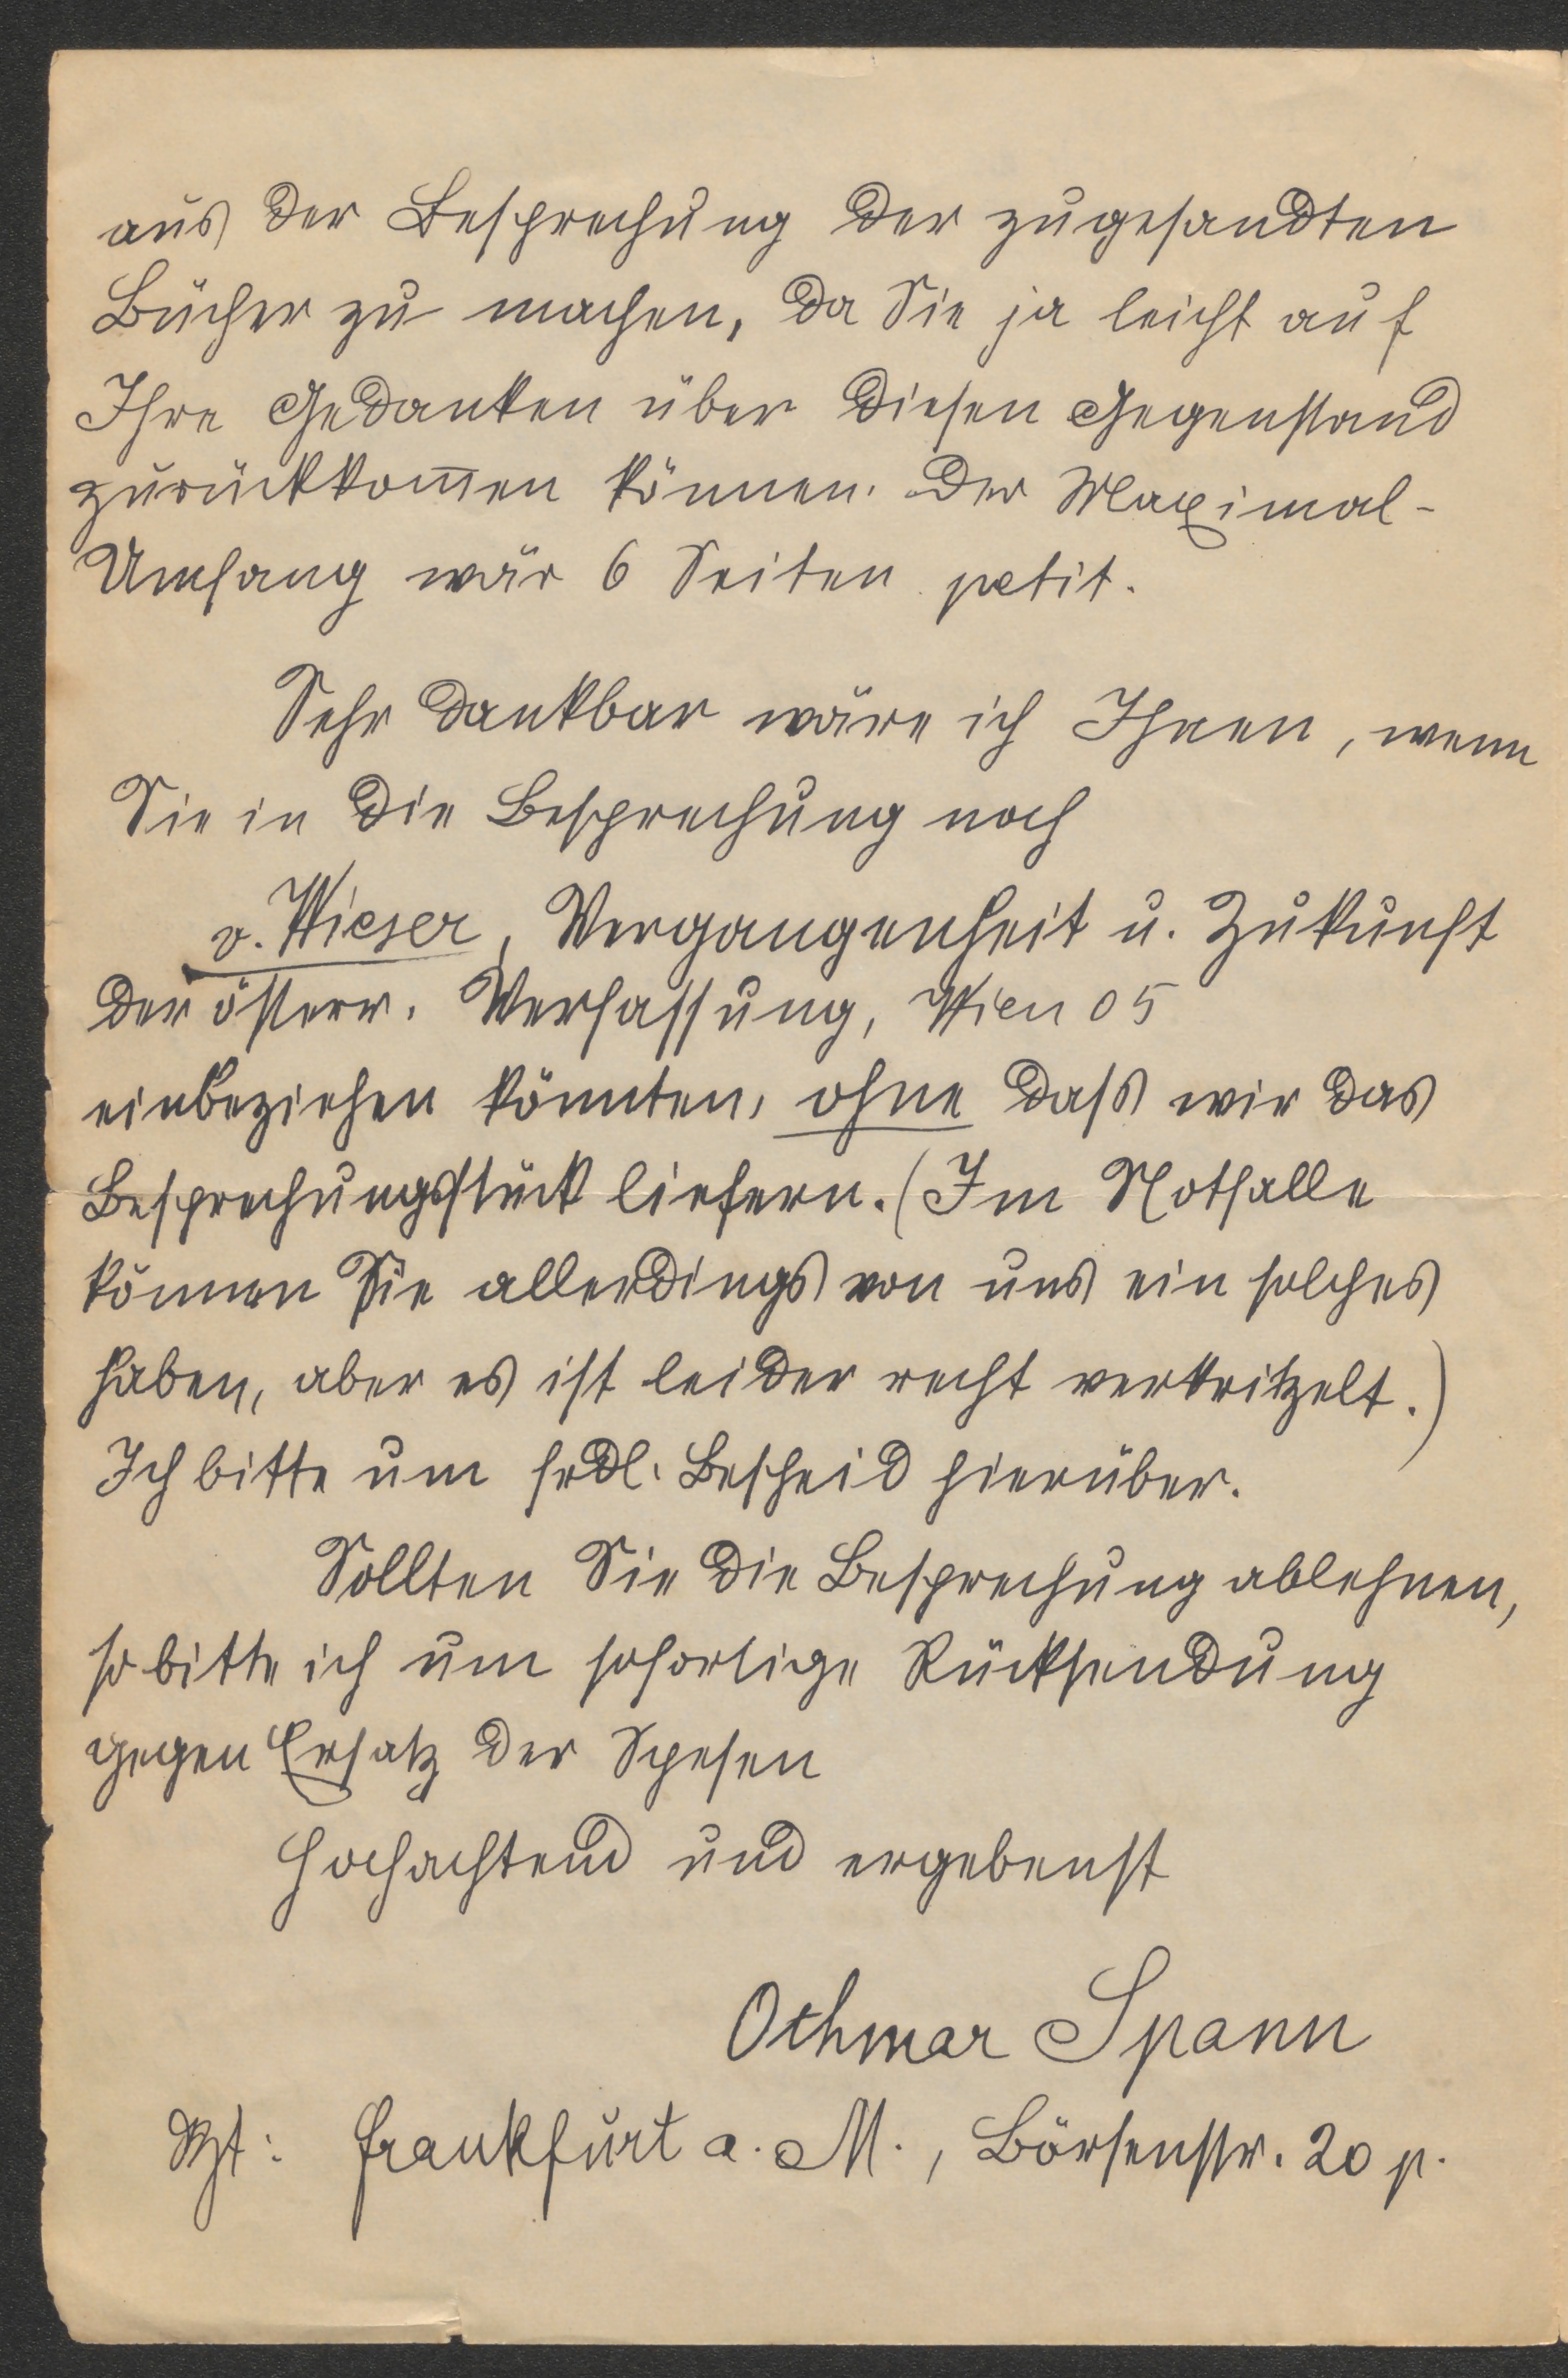 aus der Besprechung der zugesandten
Bücher zu machen, da Sie ja leicht auf
Ihre Gedanken über diesen Gegenstand
zurückkom̄en können. Der Maximal-
Umfang wär 6 Seiten petit.
Sehr dankbar wäre ich Ihnen, wenn
Sie in die Besprechung noch
v. Wieser, Vergangenheit u. Zukunft
der österr. Verfassung, Wien 05
einbeziehen könnten, ohne daß wir das
Besprechungsstück liefern. (Im Notfalle
können Sie allerdings von uns ein solches
haben, aber es ist leider recht verkritzelt.)
Ich bitte um frdl. Bescheid hierüber.
Sollten Sie die Besprechung ablehnen,
so bitte ich um sofortige Rücksendung
gegen Ersatz der Spesen
Hochachtend und ergebenst
Othmar Spann
Dzt: Frankfurt a. M., Börsenstr. 20 p.